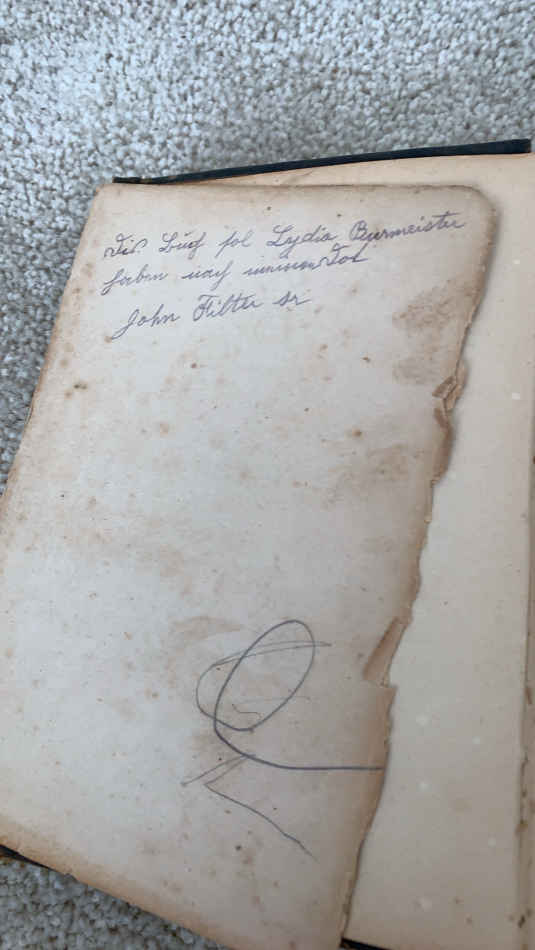 Dis Buch sol Lydia Burmeister
haben nach meinen Dot
John Filter sr